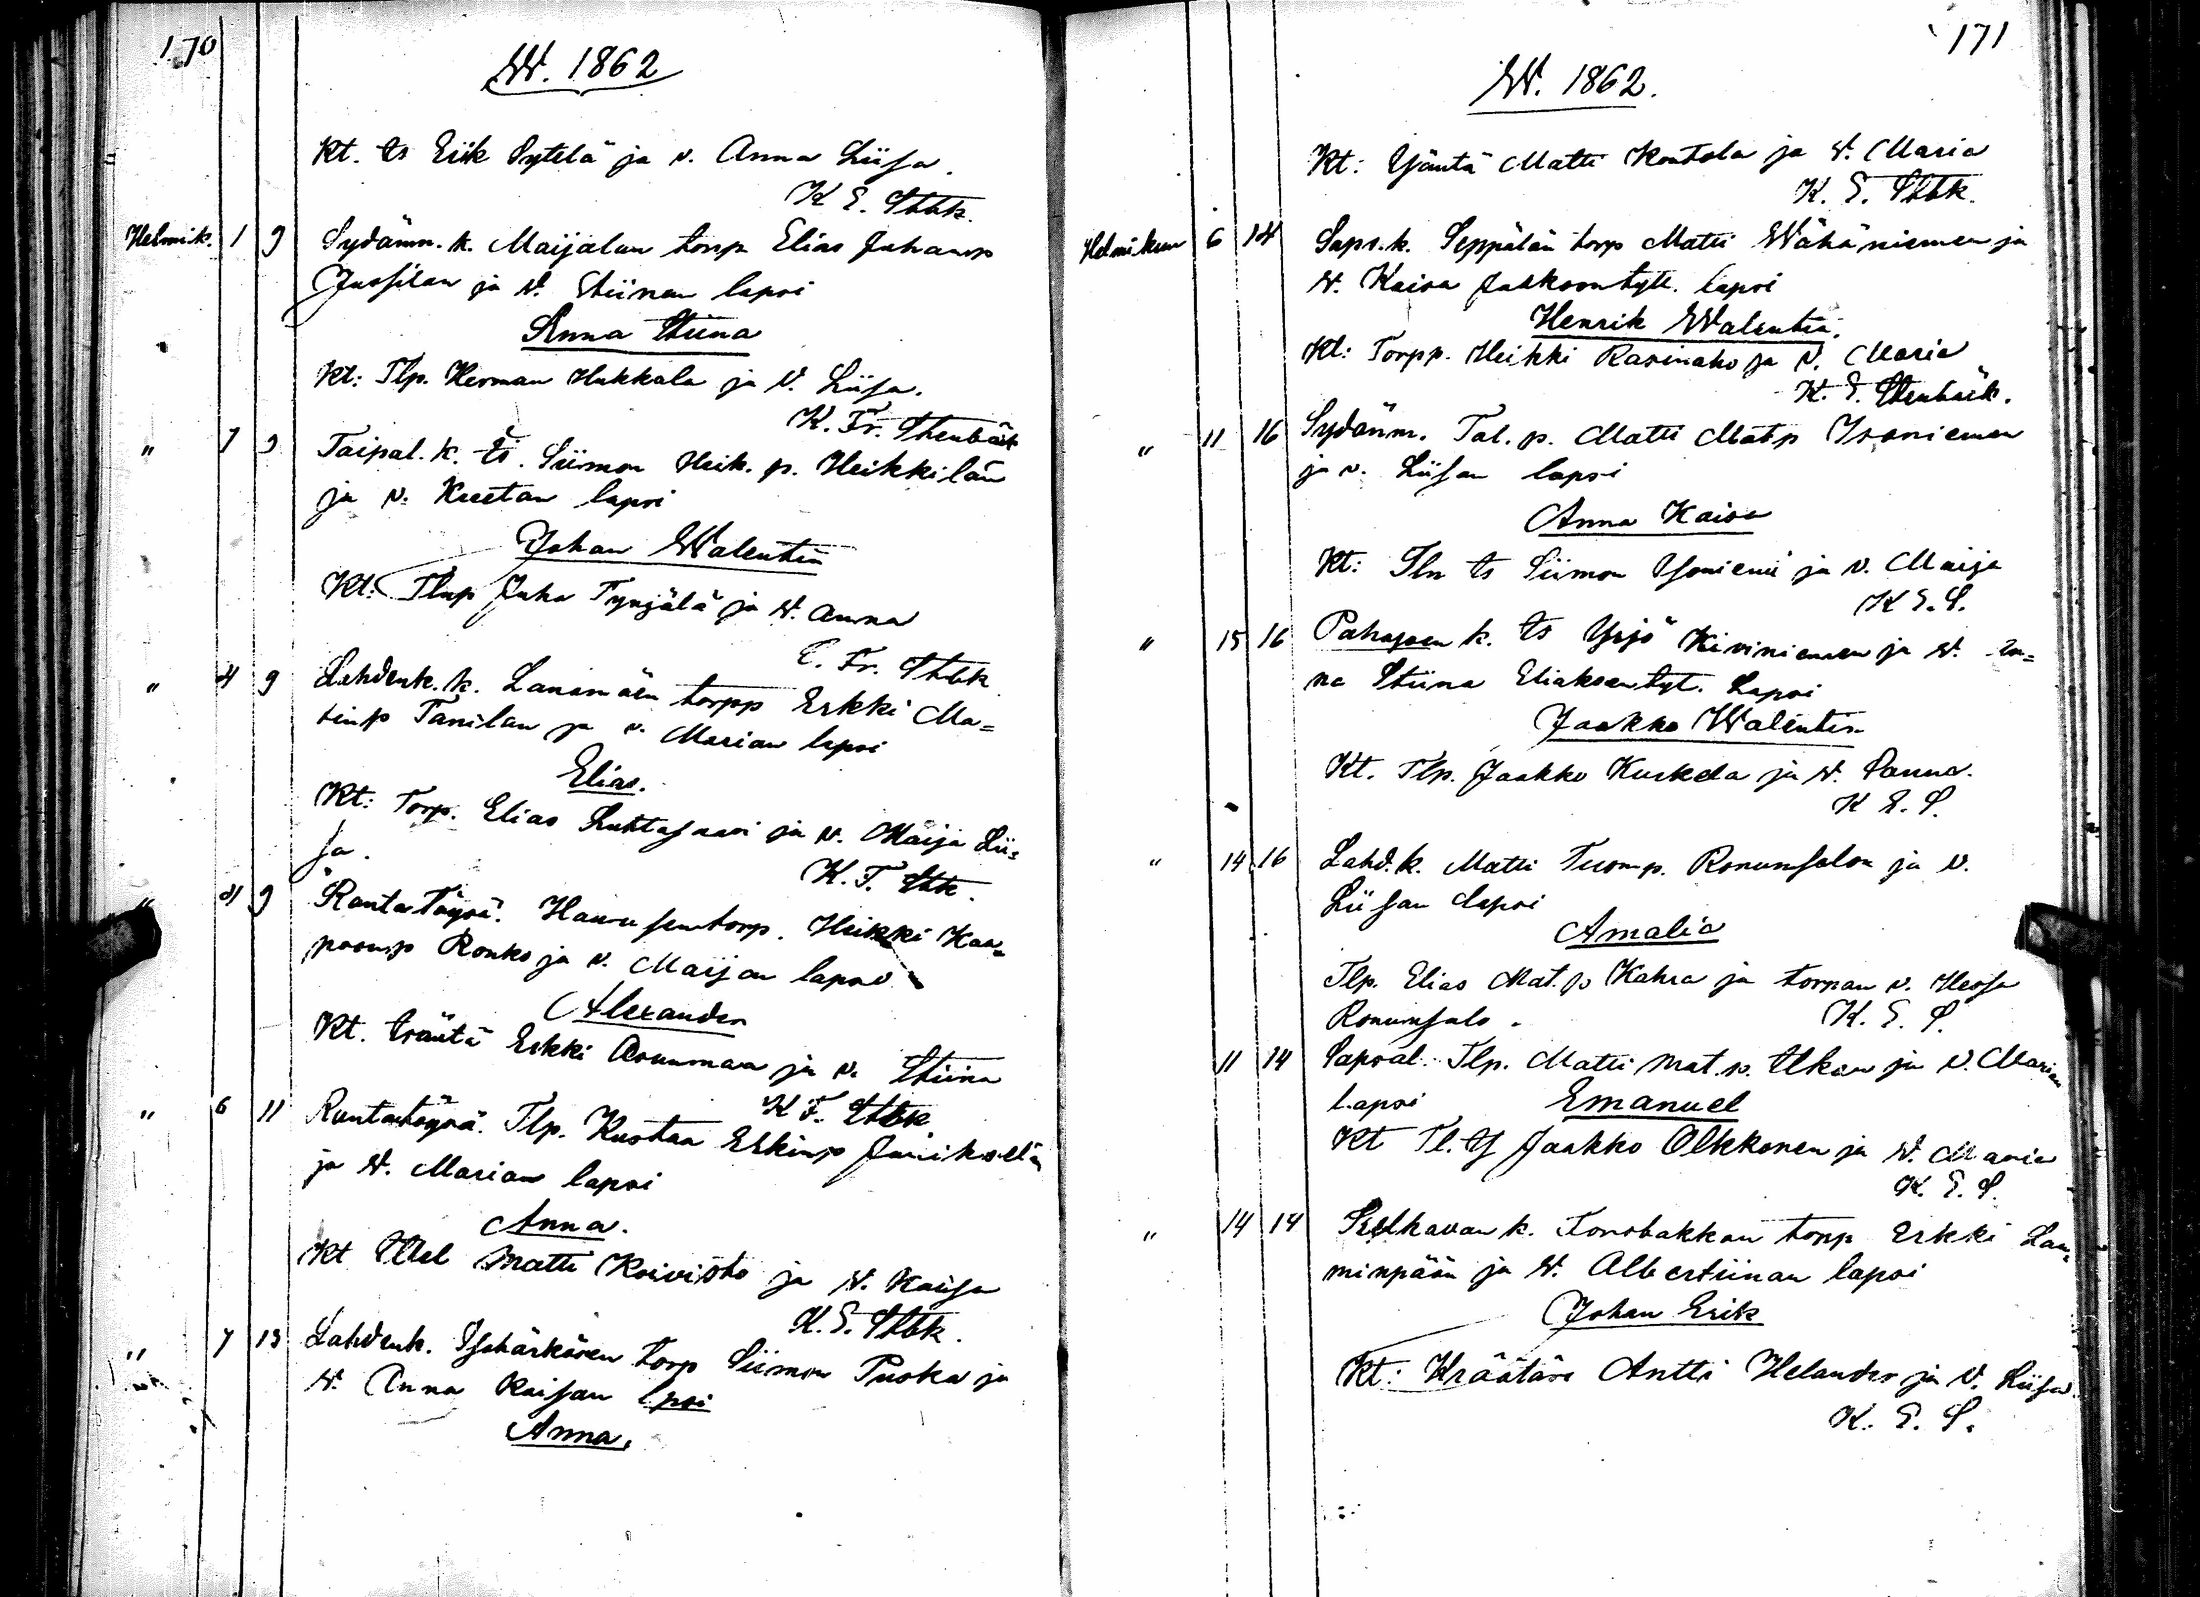 170
W. 1862
Kt. ts Erik Sytelä ja v. Anna Liisa.
K E. Stbk.
Helmik. 1 9 Sydänm. k. Maijalan torp Elias Juhanp
Jussilan ja W. Stiinan lapsi
Anna Stiina
Kt: Tlp. Herman Hukkala ja V. Liisa.
K. Fr. Stenbäck
" 7 9 Taipal. k. ts. Siimon Heik. p. Heikkilän
ja v. Kreetan lapsi
Johan Walentin
Kt: Juha Tynjälä ja W. Anna
C. Fr. Stbk
" 4 9 Lahdenk. k. Lanamäen torpp Erkki Ma=
tinp Tanilan ja v. Marian lapsi
Elias.
Kt: Torp. Elias Luhtasaari ja v. Maija Lii=
sa.
K. F. Stbk.
" 4 9 Rantatöysä. torp. Heikki Kaa=
poonp Ronko ja v. Maijan lapsi
Alexander
Kt. Erkki Asunmaa ja v. Stiina
K F. Stbk
" 6 11 Rantatöysä. Tlp. Kustaa Erkinp
ja W. Marian lapsi
Anna.
Kt Matti Koivisto ja W. Kaisa
K. E. Stbk.
" 7 13 Lahdenk. Isohärkösen torp Siimon Puska ja
W. Anna Kaisan lpsi
Anna.
171
W. 1862.
Kt: Isäntä Matti Kontola ja W. Maria
K. E. Stbk.
Helmikuun 6 14 Saps. k. Seppälän torp Matti Wähäniemen ja
W. Kaisa Jaakoontytt. lapsi
Henrik Walentin.
Kt: Torpp. Heikki Rasinaho ja V. Maria
K. E. Stenbäck.
" 11 16 Sydänm. Tal. p. Matti Mat.p Isoniemen
ja v. Liisan lapsi
Anna Kaisa
Kt: Tln ts Siimon Isoniemi ja v. Maija
K E. S.
" 15 16 Pahajoen k. ts Yrjö Kiviniemen ja W. An=
na Stiina Eliaksentyt. Lapsi
Jaakko Walentin
Kt. Tlp. Jaakko Kuskela ja W. Sanna.
K E. S.
" 14 16 Lahd. k. Matti Tuomp. Ronunsalon ja V.
Liisan lapsi
Amalia
Tlp. Elias Mat. p Kahra ja torpan v. Hessa
Ronunsalo.
K. E. S.
11 14 Sapsal. Tlp. Matti Mat. p. ja V. Marian
lapsi Emanuel
Kt Jaakko Olkkonen ja W. Maria
K. E. S.
" 14 14 k. torpp Erkki Lam=
minpään ja W. Albertiinan lapsi
Johan Erik
Kt: Kräätäri Antti Helander ja V. Liisa.
K. E. S.